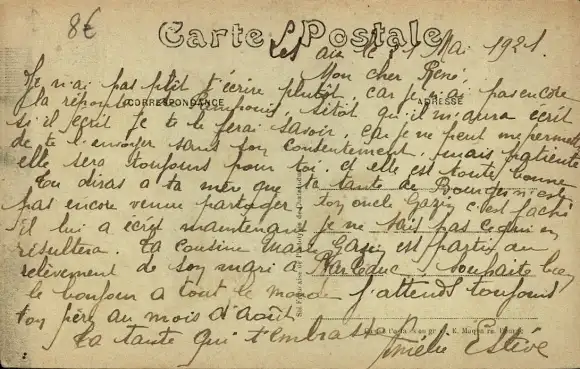 8€
Carte Postale
CORRESPONDANCE
ADRESSE
Les au le Mai 1921.
Mon cher Réné,
Je n'ai pas plutôt t'écrire plutôt, car je n'ai pas encore
la réponse sitôt qu'il m'aura écrit
si il ecrit je te le ferai savoir. Car je ne peut me permettre
de te l'envoyer sans son consentement, mais patiente
elle sera toujours pour toi. et elle est toute bonne
Tu diras a ta mère que ta tante de Bourg n'est
pas encore venue partager. Ton oncle Gazin c'est faché
il lui a écrit maintenant je ne sais pas ce qui en
résultera. Ta cousine Marie Gazin est partie au
relèvement de son mari a Bar le duc, souhaite bien
le bonjour a tout le monde j'attends toujours
ton père au mois d'Août
Ta tante qui t'embrasse
Amélie Estève